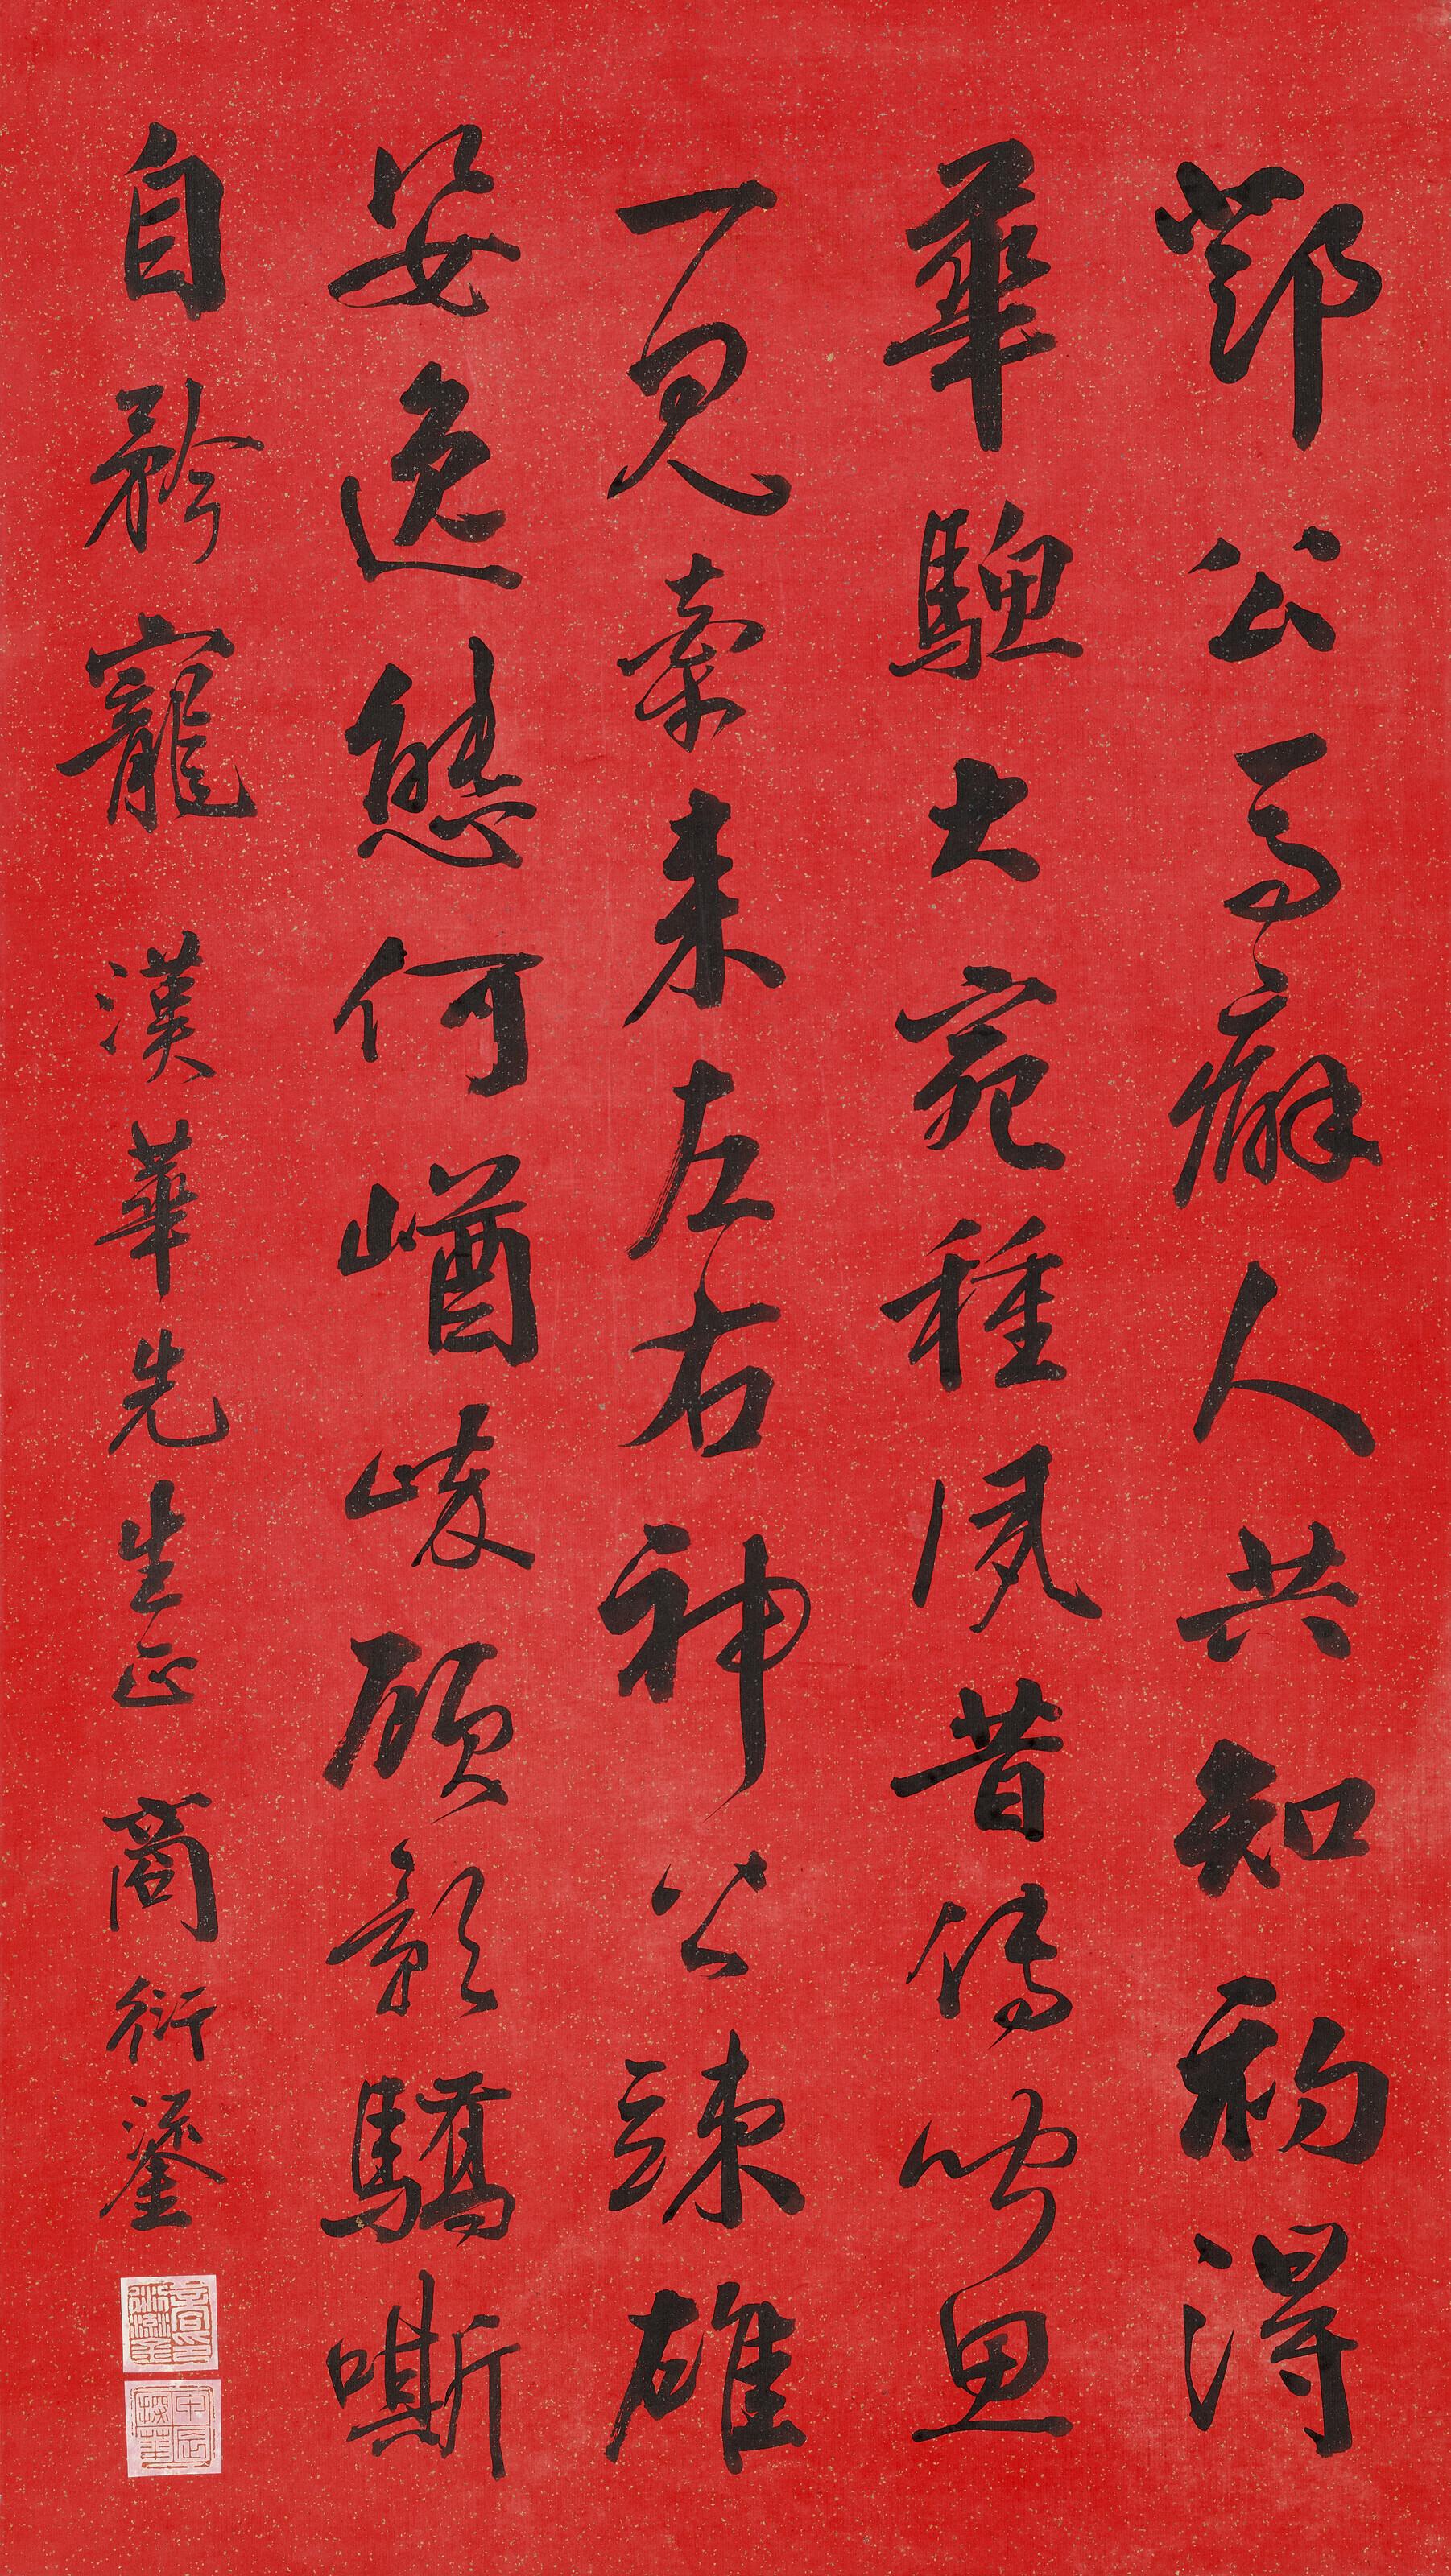 鄧公馬癖人共知初得
華驄大宛種夙昔傳聞思
一見牽来左右神皆竦雄
姿逸態何崷崒顧影驕嘶
自矜寵 漢華先生正 商衍鎏
商衍鎏印
甲辰探華